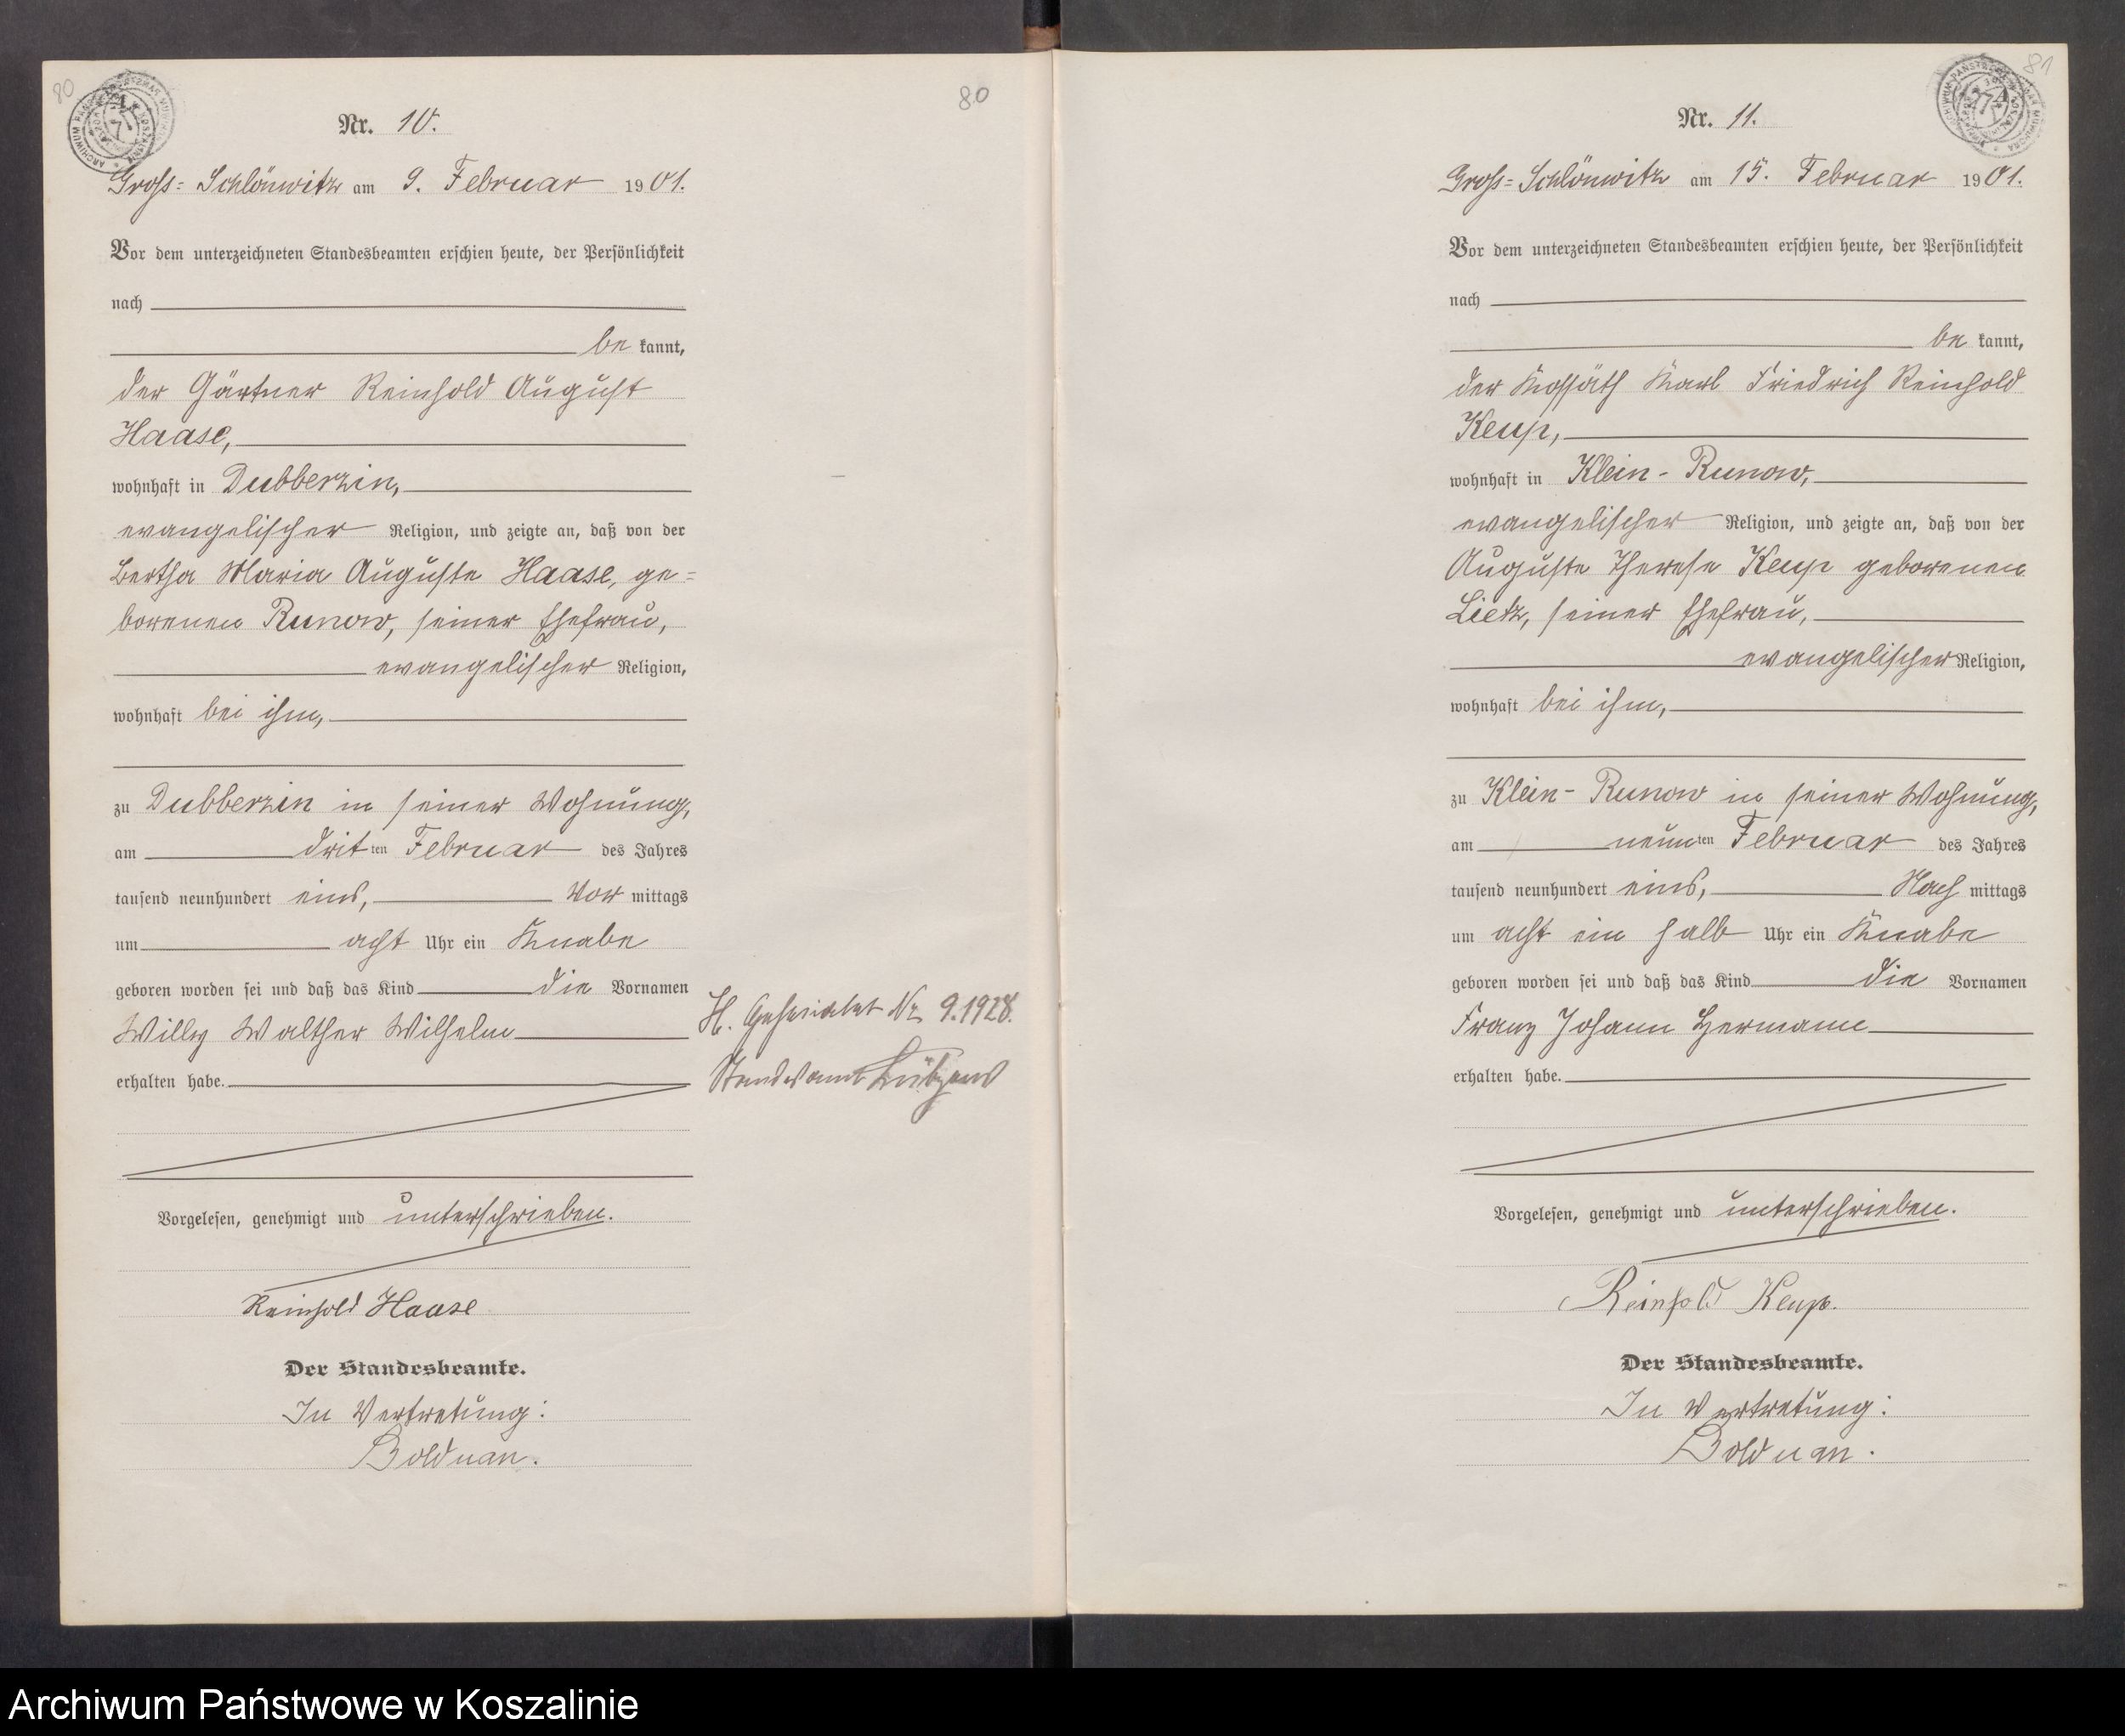 80
Nr. 10.
Groß-Schlönwitz am 9. Februar 1901.
Vor dem unterzeichneten Standesbeamten erschien heute, der Persönlichkeit
nach
be kannt,
der Gärtner Reinhold August
Haase,
wohnhaft in Dubberzin,
evangelischer Religion, und zeigte an, daß von der
Bertha Maria Auguste Haase, ge=
borenen Runow, seiner Ehefrau,
evangelischer Religion,
wohnhaft bei ihm,
zu Dubberzin in seiner Wohnung,
am dritten Februar des Jahres
tausend neunhundert eins, Vor mittags
um acht Uhr ein Knabe
geboren worden sei und daß das Kind die Vornamen
Willy Walther Wilhelm
erhalten habe.
Vorgelesen, genehmigt und unterschrieben.
Reinhold Haase
Der Standesbeamte.
In Vertretung:
Bolduan.
80
H. Geheiratet Nr. 9.1928.
Standesamt
81
Nr. 11.
Groß-Schlönwitz am 15. Februar 1901.
Vor dem unterzeichneten Standesbeamten erschien heute, der Persönlichkeit
nach
be kannt,
der Kossäth Karl Friedrich Reinhold
Keup,
wohnhaft in Klein-Runow,
evangelischer Religion, und zeigte an, daß von der
Auguste Therese Keup geborenen
Lietz, seiner Ehefrau,
evangelischer Religion,
wohnhaft bei ihm,
zu Klein-Runow in seiner Wohnung,
am neunten Februar des Jahres
tausend neunhundert eins, Nach mittags
um acht ein halb Uhr ein Knabe
geboren worden sei und daß das Kind die Vornamen
Franz Johann Hermann
erhalten habe.
Vorgelesen, genehmigt und unterschrieben.
Reinhold Keup.
Der Standesbeamte.
In Vertretung:
Bolduan.
Archiwum Państwowe w Koszalinie